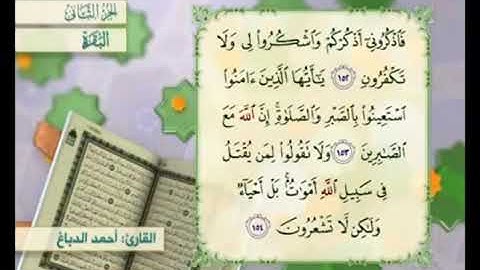 الجزء الثاني
البقرة
فَٱذۡكُرُونِيٓ أَذۡكُرۡكُمۡ وَٱشۡكُرُواْ لِي وَلَا
تَكۡفُرُونِ ١٥٢ يَـٰٓأَيُّهَا ٱلَّذِينَ ءَامَنُواْ
ٱسۡتَعِينُواْ بِٱلصَّبۡرِ وَٱلصَّلَوٰةِۚ إِنَّ ٱللَّهَ مَعَ
ٱلصَّـٰبِرِينَ ١٥٣ وَلَا تَقُولُواْ لِمَن يُقۡتَلُ
فِي سَبِيلِ ٱللَّهِ أَمۡوَٰتُۢۚ بَلۡ أَحۡيَآءٞ
وَلَـٰكِن لَّا تَشۡعُرُونَ ١٥٤
القارئ: أحمد الدباغ